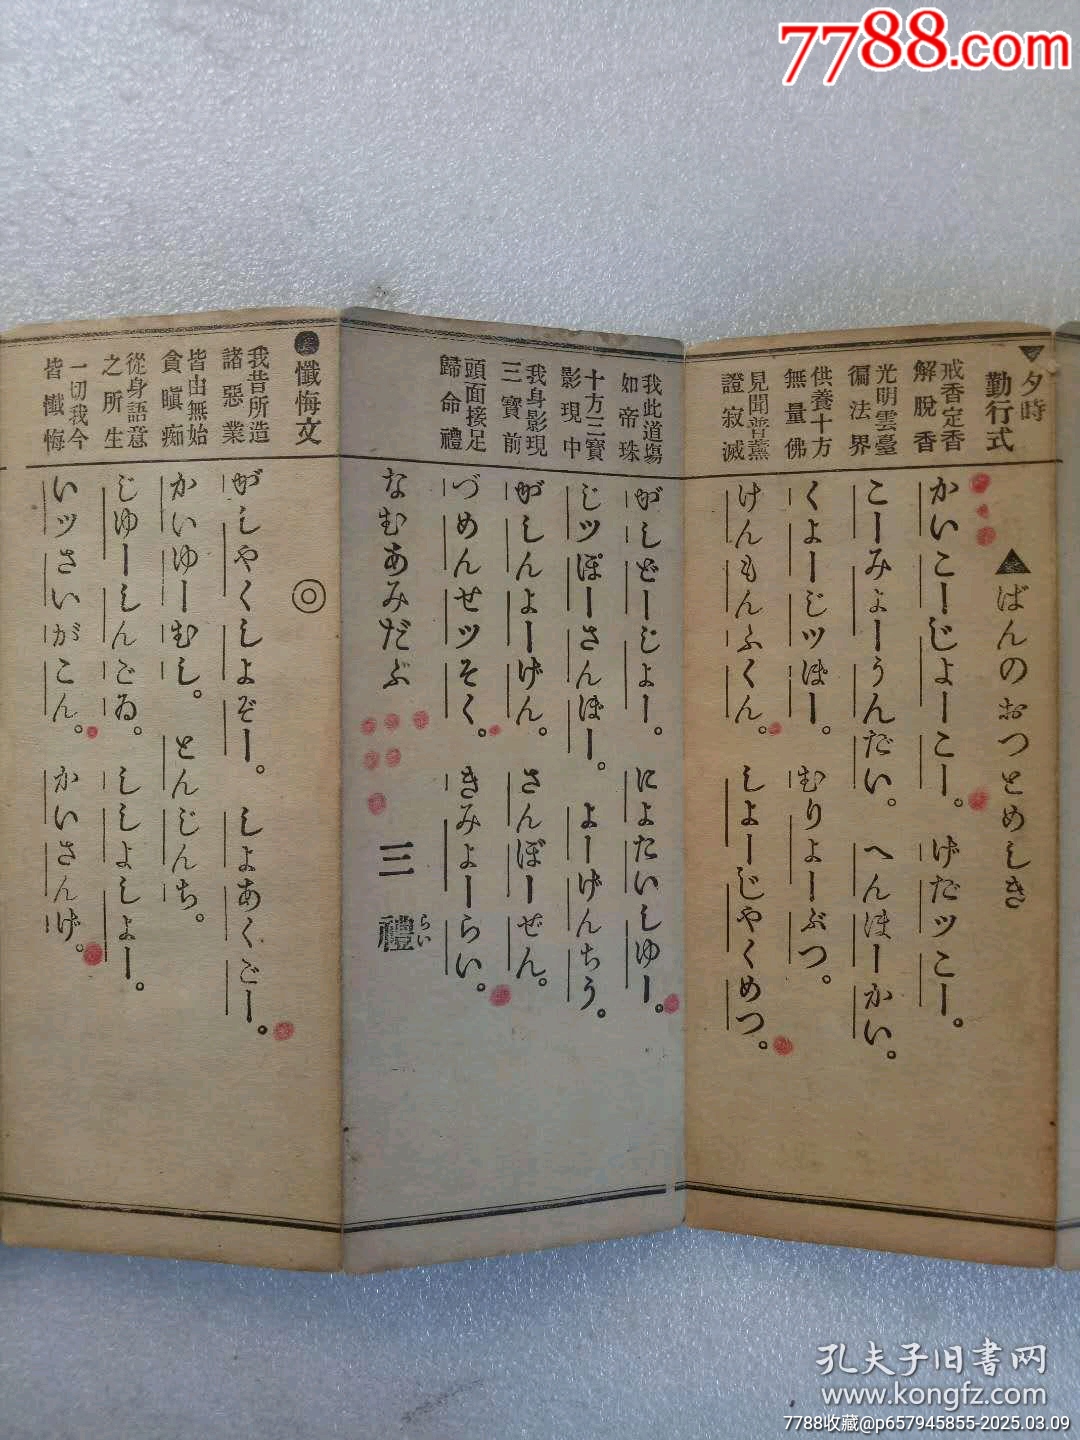 7788.com
夕時
勤行式
ばんのおつとめしき
戒香定香
解脫香
かいこーじょーこー。げだッこー。
光明雲臺
徧法界
こーみょーうんだい。へんほーかい。
供養十方
無量佛
くよーじッぽー。むりょーぶつ。
見聞普薰
證寂滅
けんもんふくん。しよーじやくめつ。
我此道場
如帝珠
がしどーじょー。によたいしゆー。
十方三寶
影現中
じッぽーさんぼー。よーげんちう。
我身影現
三寶前
がしんよーげん。さんぼーぜん。
頭面接足
歸命禮
づめんせツそく。きみよーらい。
なむあみだぶ 三禮
らい
懺悔文
◎
我昔所造
諸惡業
がしやくしよぞー。しよあくごー。
皆由無始
貪瞋痴
かいゆーむし。とんじんち。
從身語意
之所生
じゆーしんごゐ。ししよしよー。
一切我今
皆懺悔
いッさいがこん。かいさんげ。
孔夫子旧書网
www.kongfz.com
7788收藏@p657945855-2025.03.09